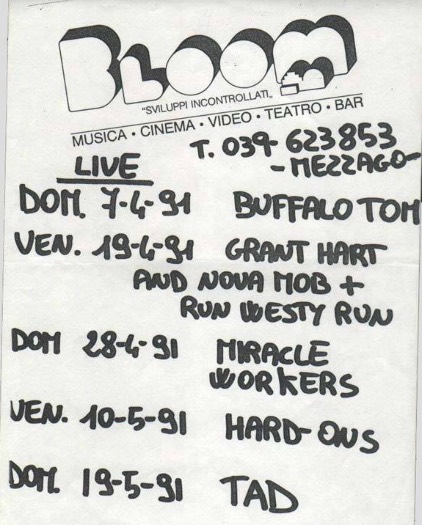 BLOOM
"SVILUPPI INCONTROLLATI"
MUSICA • CINEMA • VIDEO • TEATRO • BAR
T. 039-623853
-MEZZAGO-
LIVE
DOM. 7-4-91 BUFFALO TOM
VEN. 19-4-91 GRANT HART
AND NOVA MOB +
RUN WESTY RUN
DOM 28-4-91 MIRACLE
WORKERS
VEN. 10-5-91 HARD-ONS
DOM. 19-5-91 TAD